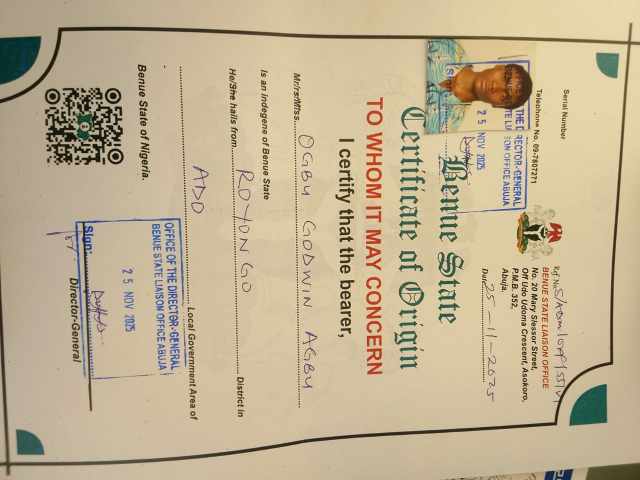 Serial Number
Telephone No. 09-7807271
BENUE STATE LIAISON OFFICE
No. 20 Mary Slessor Street,
Off Udo Udoma Crescent, Asokoro,
P.M.B. 352,
Abuja.
Ref No.
Date 25-11-2025
THE DIRECTOR-GENERAL
BENUE STATE LIAISON OFFICE ABUJA
25 NOV 2025
Benue State
Certificate of Origin
TO WHOM IT MAY CONCERN
I certify that the bearer,
Mr/rs/Miss OGBU GODWIN AGBU
Is an indegene of Benue State
He/She hails from ROYONGO District in
ADO Local Government Area of
Benue State of Nigeria.
OFFICE OF THE DIRECTOR-GENERAL
BENUE STATE LIAISON OFFICE ABUJA
25 NOV 2025
Sign:
Director-General